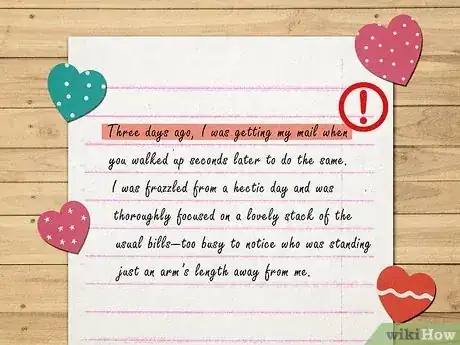 Three days ago, I was getting my mail when
you walked up seconds later to do the same.
I was frazzled from a hectic day and was
thoroughly focused on a lovely stack of the
usual bills—too busy to notice who was standing
just an arm's length away from me.
wikiHow